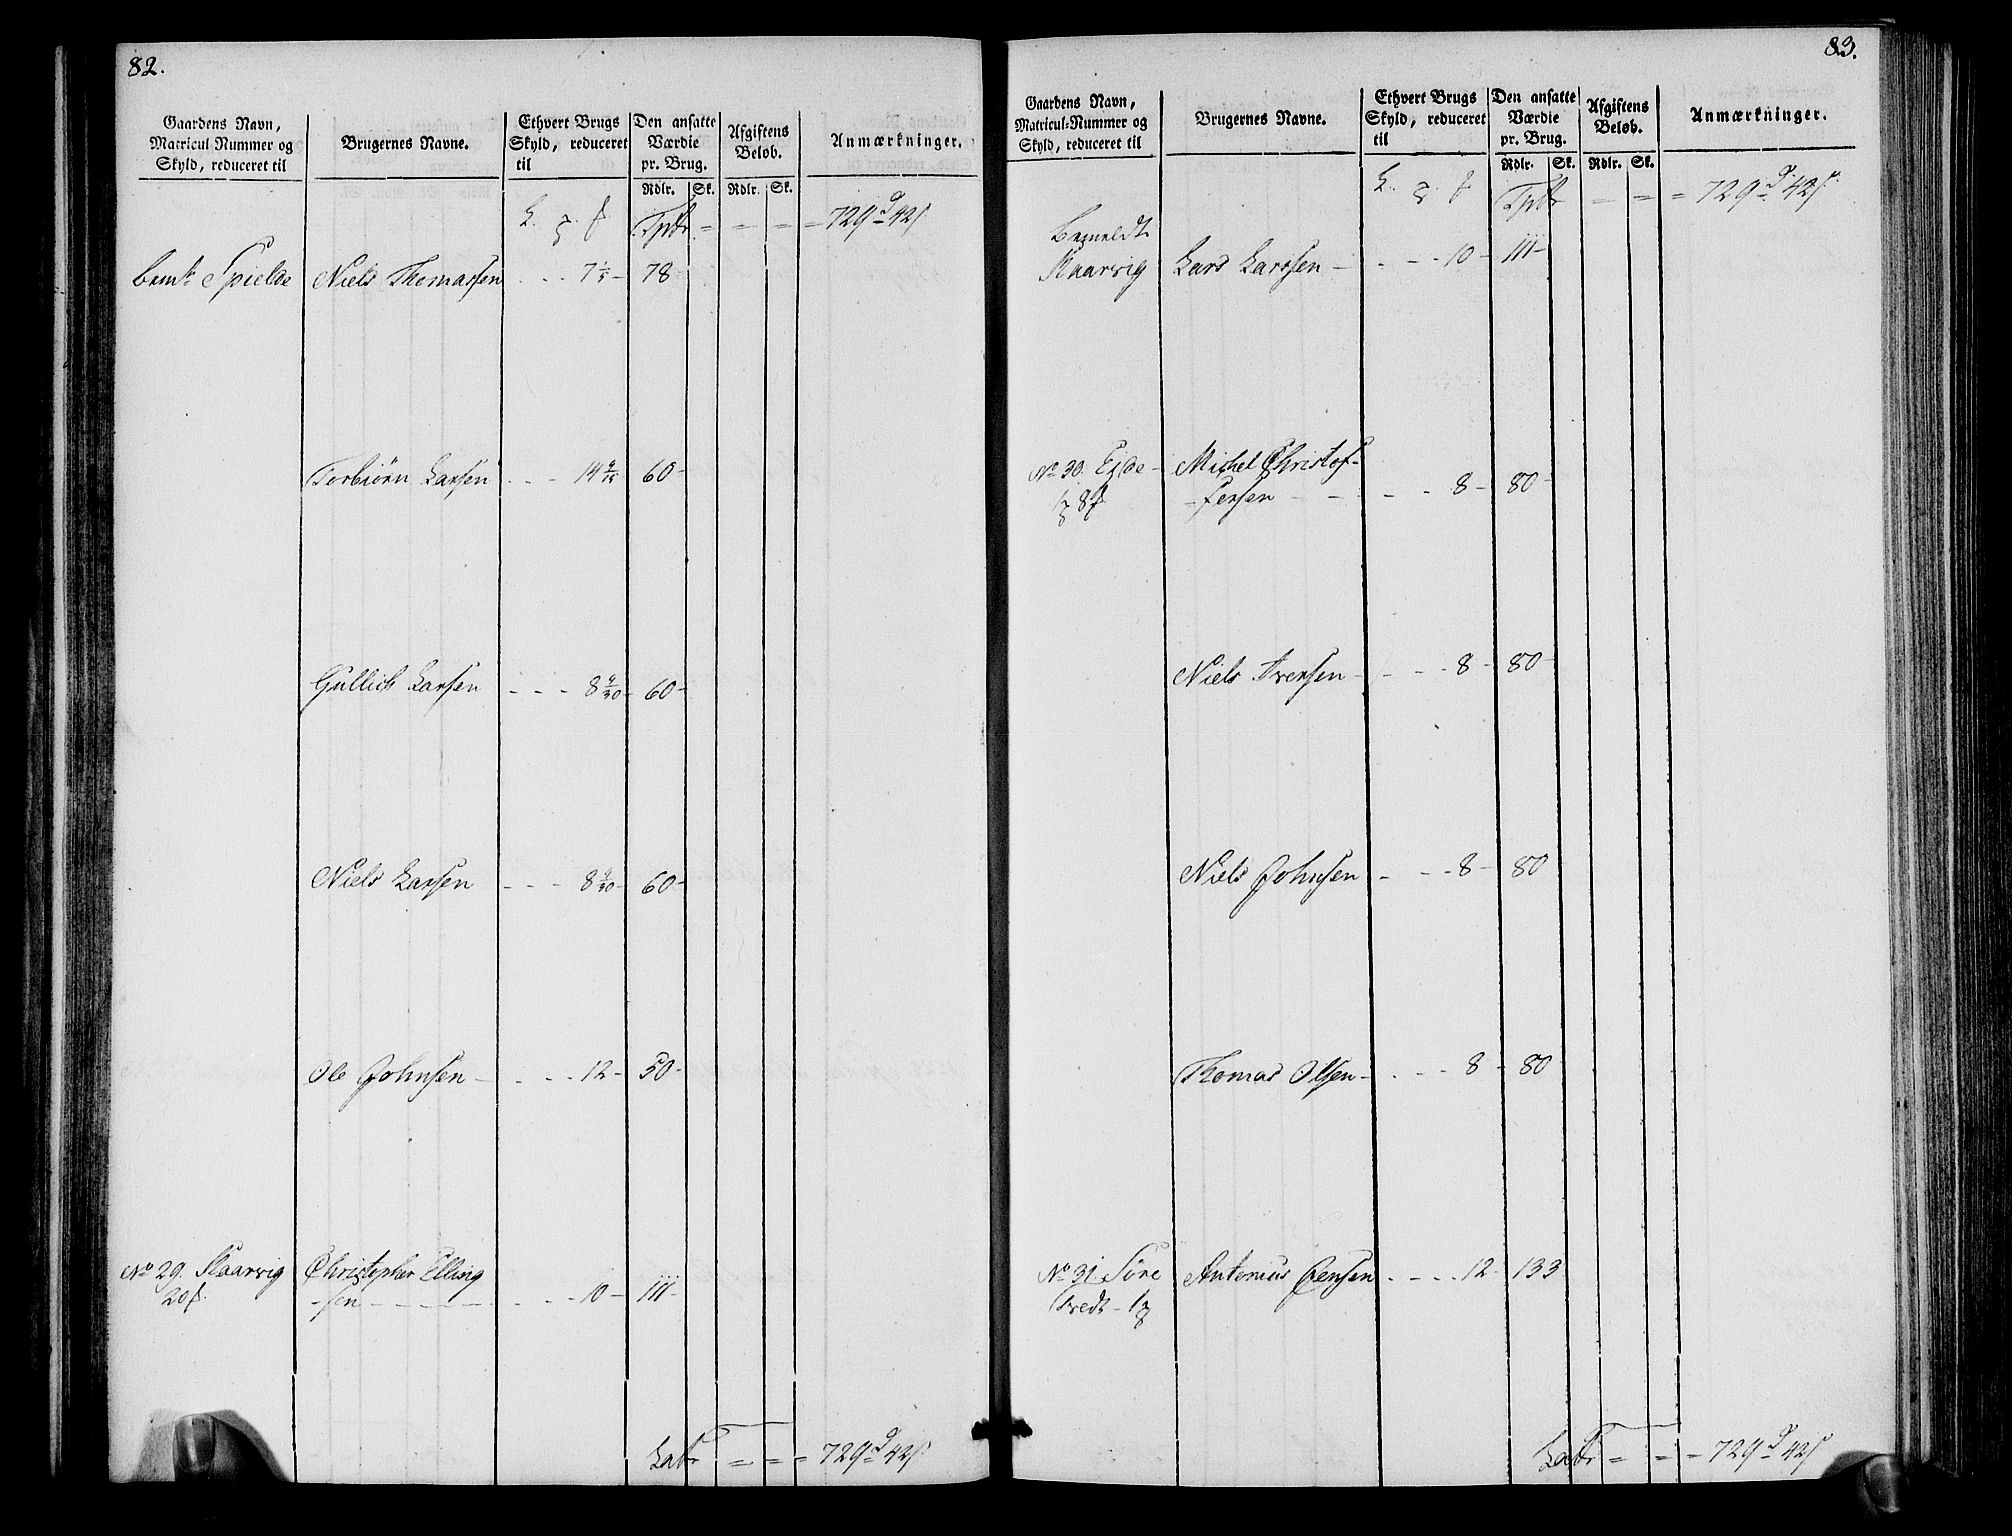 82.
Gaardens Navn,
Matricul-Nummer og
Skyld, reduceret til
Brugernes Navne.
Ethvert Brugs
Skyld, reduceret
til
Den ansatte
Værdie
pr. Brug.
Afgiftens
Beløb.
Anmærkninger.
Rdlr. Sk. Rdlr. Sk.
Tpt = = = = 729 d 42 s.
bemt Spielde Niels Thomassen - - - 7 1/5 - 78 -
Torbiørn Larsen - - - 14 4/15 60 -
Gullich Larsen - - - 8 4/30 - 60 -
Niels Larsen - - - 8 4/30 - 60 -
Ole Johnsen - - - - 12 - 50 -
No 29. Skaarvig Christopher Elling
20 - sen - - - - - - - - 10 - 111 -
Latr = = = 729 d 42 s
83.
Gaardens Navn,
Matricul-Nummer og
Skyld, reduceret til
Brugernes Navne.
Ethvert Brugs
Skyld, reduceret
til
Den ansatte
Værdie
pr. Brug.
Afgiftens
Beløb.
Anmærkninger.
Rdlr. Sk. Rdlr. Sk.
Tptr = = = 729 d 42 s.
Bemeldt
Skaarvig Lars Larssen - - - - 10 - 111 -
No 30. Eide - Michel Christof-
8 - fersen - - - - - 8 - 80 -
Niels Iversen - - - 8 - 80 -
Niels Johnsen - - - 8 - 80
Thomas Olsen - - - - 8 - 80
No 31. Søre Antonius Jensen - - - - 12 - 133
Tvedt -
Latr = = = 729 d 42 s